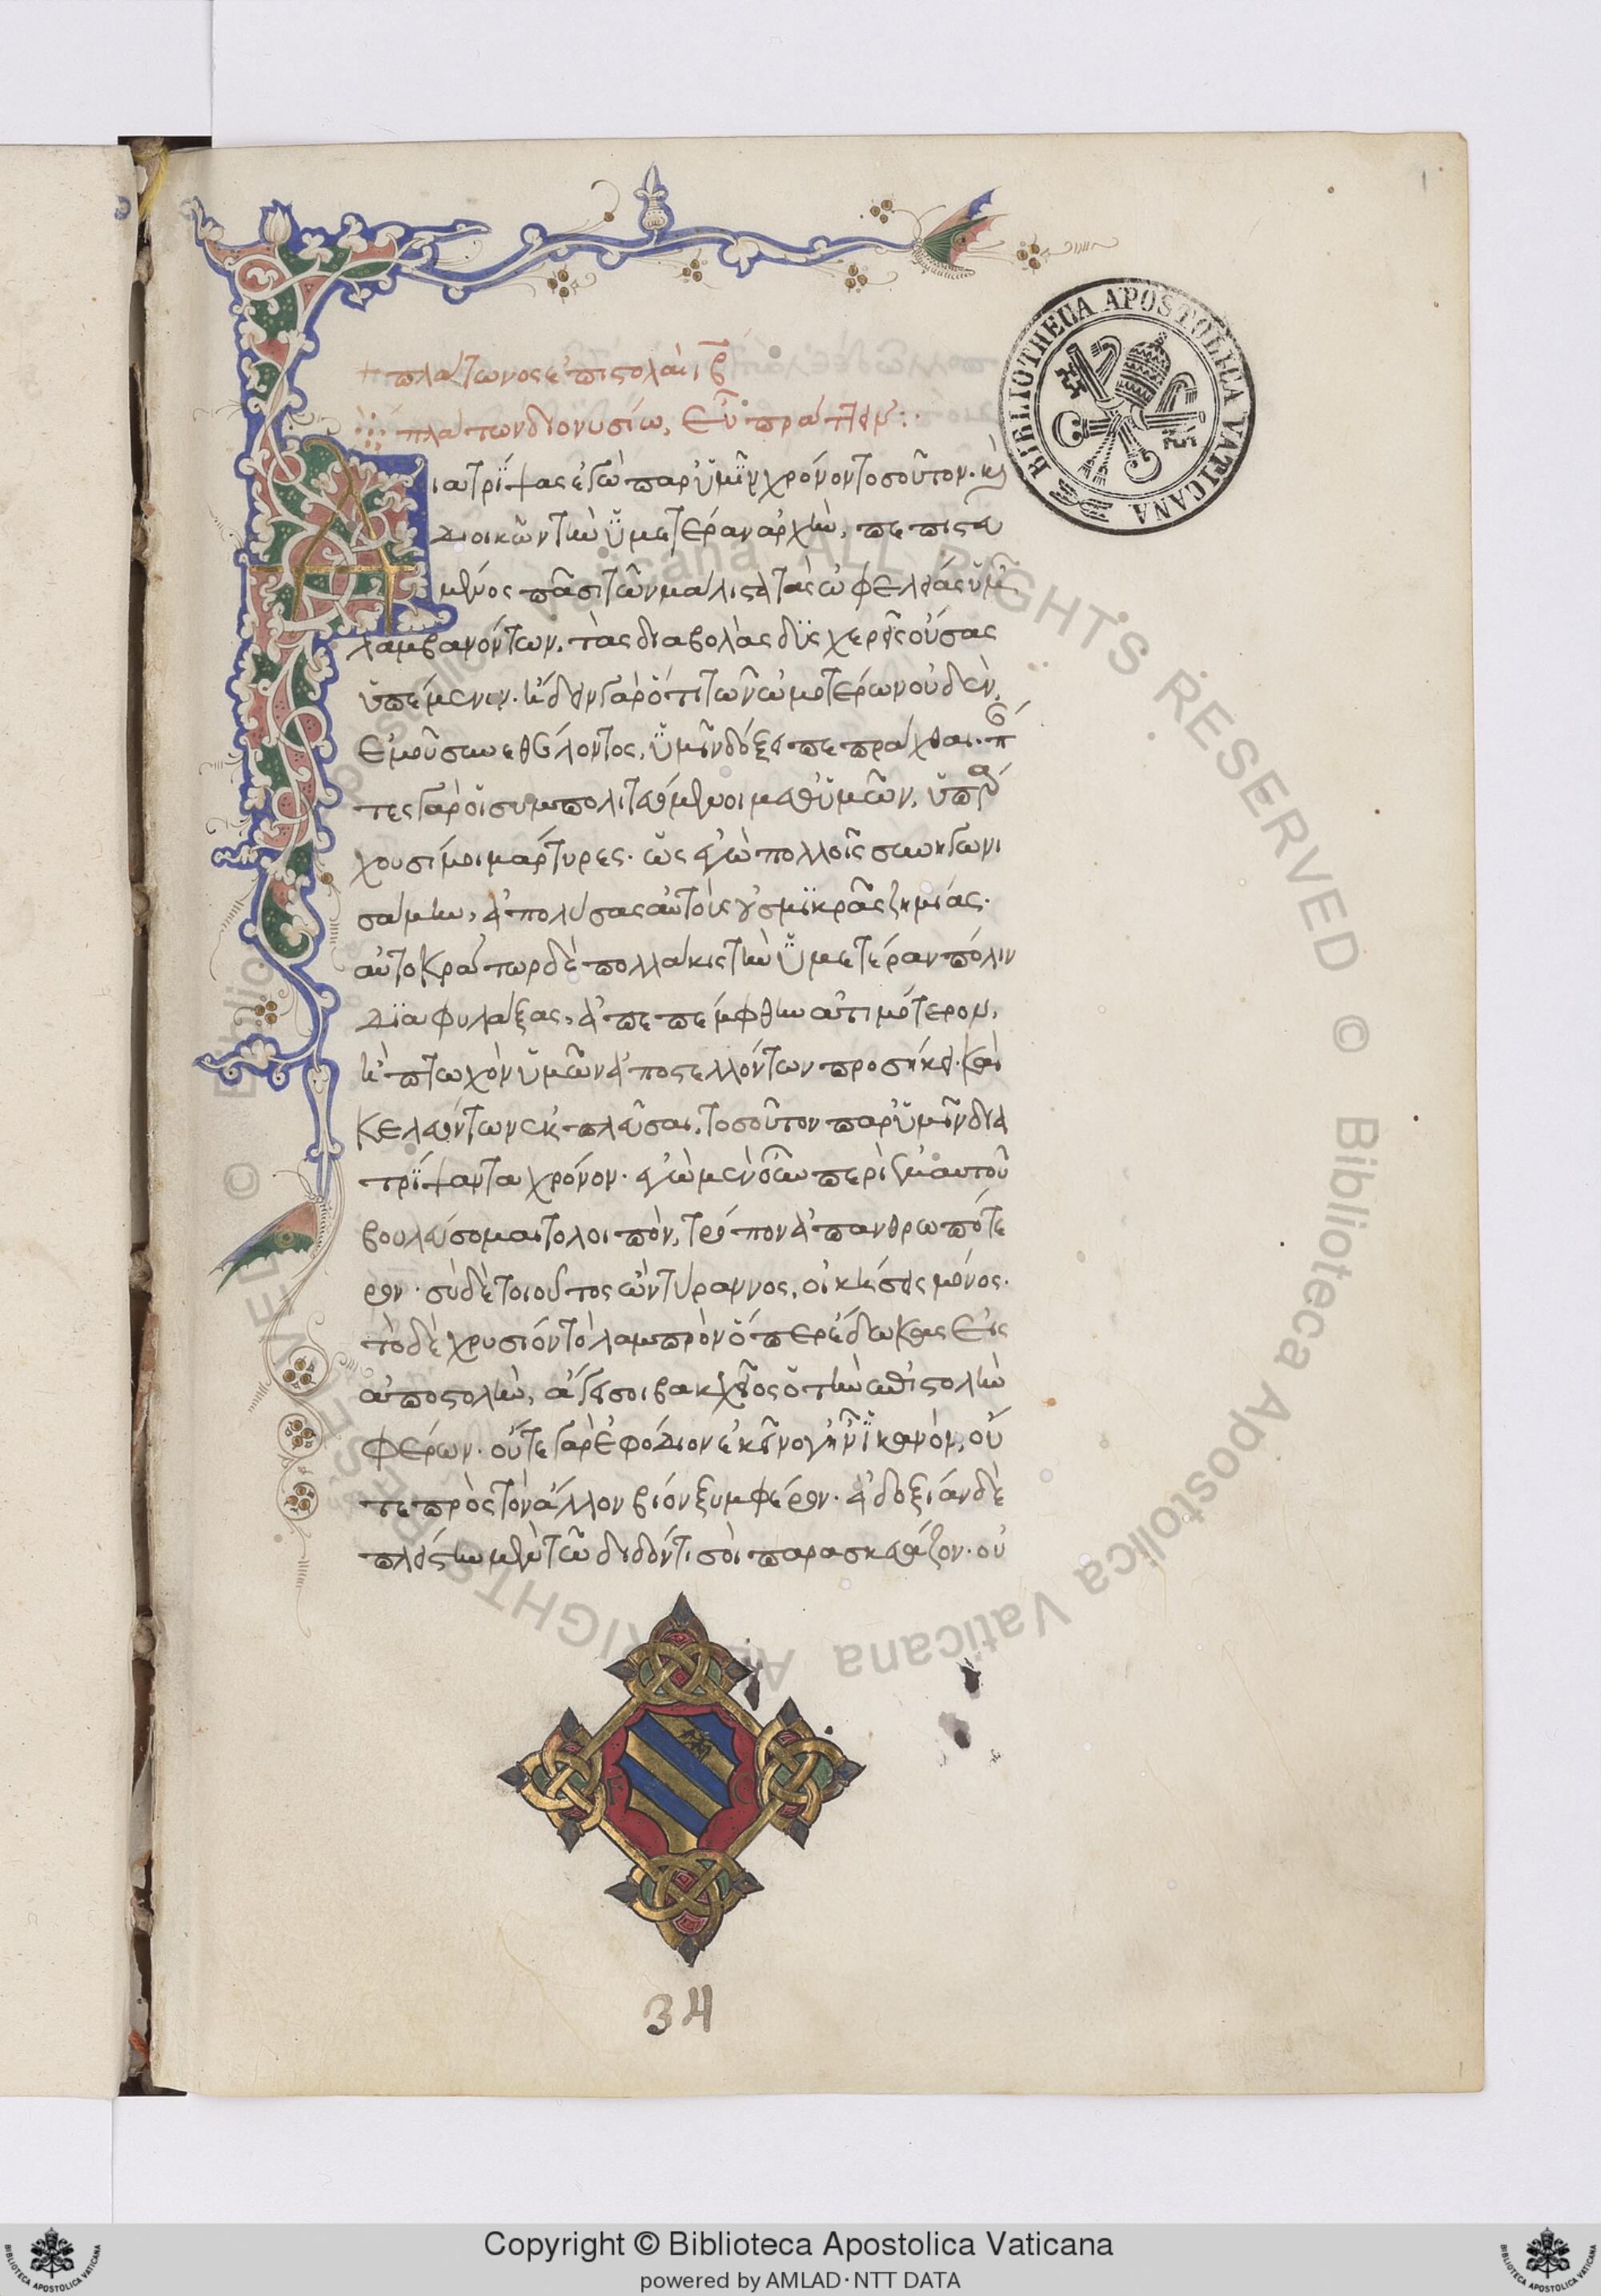 1
+ πλάτωνος ἐπιστολαὶ ιβ
πλάτων διονυσίω, εὖ πράττειν:
Διατρίψας ἐγὼ παρ' ὑμῖν χρόνον τοσοῦτον. καὶ
διοικῶν τὴν ὑμετέραν ἀρχὴν, πεπιστευ
μένος πάντων μάλιστα τὰς ὠφελείας ὑμῶν
λαμβανόντων, τὰς διαβολὰς δυσχερεῖς οὔσας
ὑπέμενον. ἤδειν γὰρ ὅτι τῶν ὠμοτέρων οὐδὲν,
ἐμοῦ συνεθέλοντος, ὑμῖν δόξει πεπράχθαι. πάν
τες γὰρ οἱ συμπολιτευόμενοι μεθ' ὑμῶν, ὑπάρ
χουσί μοι μάρτυρες. ὧν ἐγὼ πολλοῖς συνηγωνι
σάμην, ἀπολύσας αὐτοὺς οὐ σμικρᾶς ζημίας.
αὐτοκράτωρ δὲ πολλάκις τὴν ὑμετέραν πόλιν
διαφυλάξας, ἀπεπέμφθην ἀτιμότερον,
ἢ πτωχὸν ὑμῶν ἀποστελλόντων προσήκει. καὶ
κελευόντων ἐκπλεῦσαι, τοσοῦτον παρ' ὑμῖν δια
τρίψαντα χρόνον. ἐγὼ μὲν οὖν περὶ ἐμαυτοῦ
βουλεύσομαι τὸ λοιπὸν, τρόπον ἀπανθρωπότε
ρον. σὺ δὲ τοιοῦτος ὢν τύραννος, οἰκήσεις μόνος.
τὸ δὲ χρυσίον τὸ λαμπρὸν ὅπερ ἔδωκας εἰς
ἀποστολὴν, ἄγει σοι βακχεῖος ὁ τὴν ἐπιστολὴν
φέρων. οὔτε γὰρ ἐφόδιον ἐκεῖνό γ' ἦν ἱκανὸν, οὔ
τε πρὸς τὸν ἄλλον βίον ξυμφέρον. ἀδοξίαν δὲ
πλείστην μὲν τῶ διδόντι σοὶ παρασκευάζον. οὐ
F C
34
BIBLIOTHECA APOSTOLICA VATICANA
© Biblioteca Apostolica Vaticana ALL RIGHTS RESERVED © Biblioteca Apostolica Vaticana ALL RIGHTS RESERVED
Copyright © Biblioteca Apostolica Vaticana
powered by AMLAD·NTT DATA
BIBLIOTECA APOSTOLICA VATICANA
BIBLIOTECA APOSTOLICA VATICANA